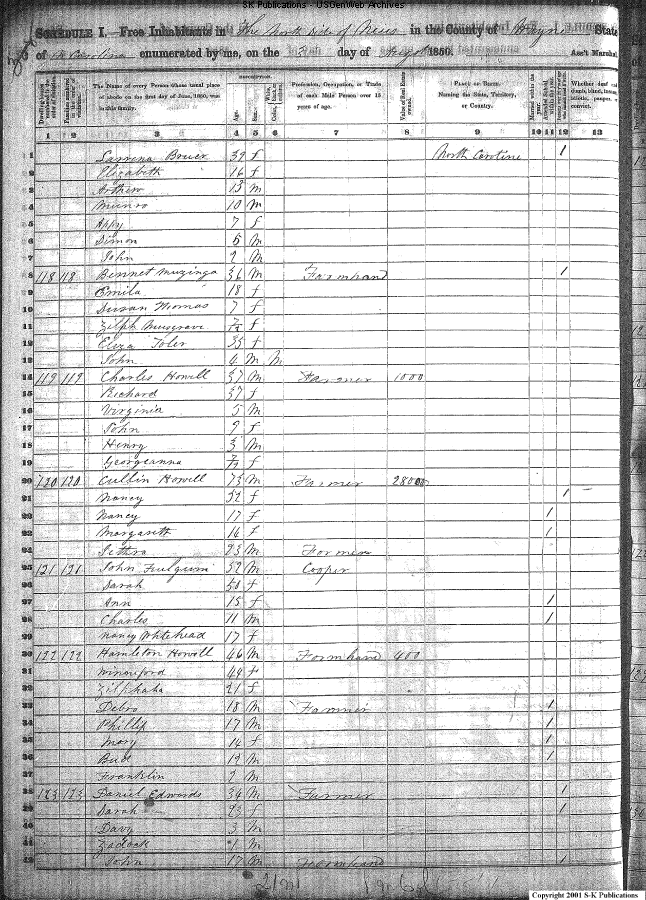 SK Publications - USGenWeb Archives
SCHEDULE I. Free Inhabitants in The North side of Neus in the County of Wayne State
of N Carolina enumerated by me, on the day of Augst 1850. Ass't Marshal
DESCRIPTION.
Dwelling-houses numbered in the order of visitation. Families numbered in the order of visitation. The Name of every Person whose usual place of abode on the first day of June, 1850, was in this family. Age. Sex. Color, White, black, or mulatto. Profession, Occupation, or Trade of each Male Person over 15 years of age. Value of Real Estate owned. PLACE OF BIRTH. Naming the State, Territory, or Country. Married within the year. Attended School within the year. Whether deaf and dumb, blind, insane, idiotic, pauper, or convict.
1 2 3 4 5 6 7 8 9 10 11 12 13
1 39 f North Caroline 1
2 Elizabeth 16 f
3 Arthur 13 m
4 Munro 10 m
5 Appy 7 f
6 Simon 5 m
7 John 2 m
8 118 118 Bennet Muzinga 36 m Farmhand 1
9 Emila 18 f
10 Susan Thomas 7 f
11 Zilph Musgrave f
12 Eliza Toler 35 f
13 John 4 m m
14 119 119 Charles Howell 37 m Farmer 1000
15 Richard 37 f
16 Virginia 5 m
17 John 9 f
18 Henry 3 m
19 Georgeanna f
20 120 120 Cullin Howell 73 m Farmer 28000
21 Nancy 52 f 1
22 Nancy 17 f 1
23 Margarett 16 f 1
24 23 m Farmer
25 121 121 John Fulgum 52 m Cooper
26 Sarah 50 f
27 Ann 15 f 1
28 Charles 11 m 1
29 Nancy Whitehead 17 f
30 122 122 Hamleton Howell 46 m Farmhand 400
31 Winniford 49 f
32 Zilphaha 21 f
33 Debro 18 m Farmer 1
34 Phillip 17 m 1
35 Mary 14 f 1
36 19 m 1
37 Franklin 2 m
38 123 123 Daniel Edwards 34 m Farmer 1
39 Sarah 23 f 1
40 Davy 3 m
41 Zadock 1 m
42 John 17 m Farmhand 1
Copyright 2001 S-K Publications